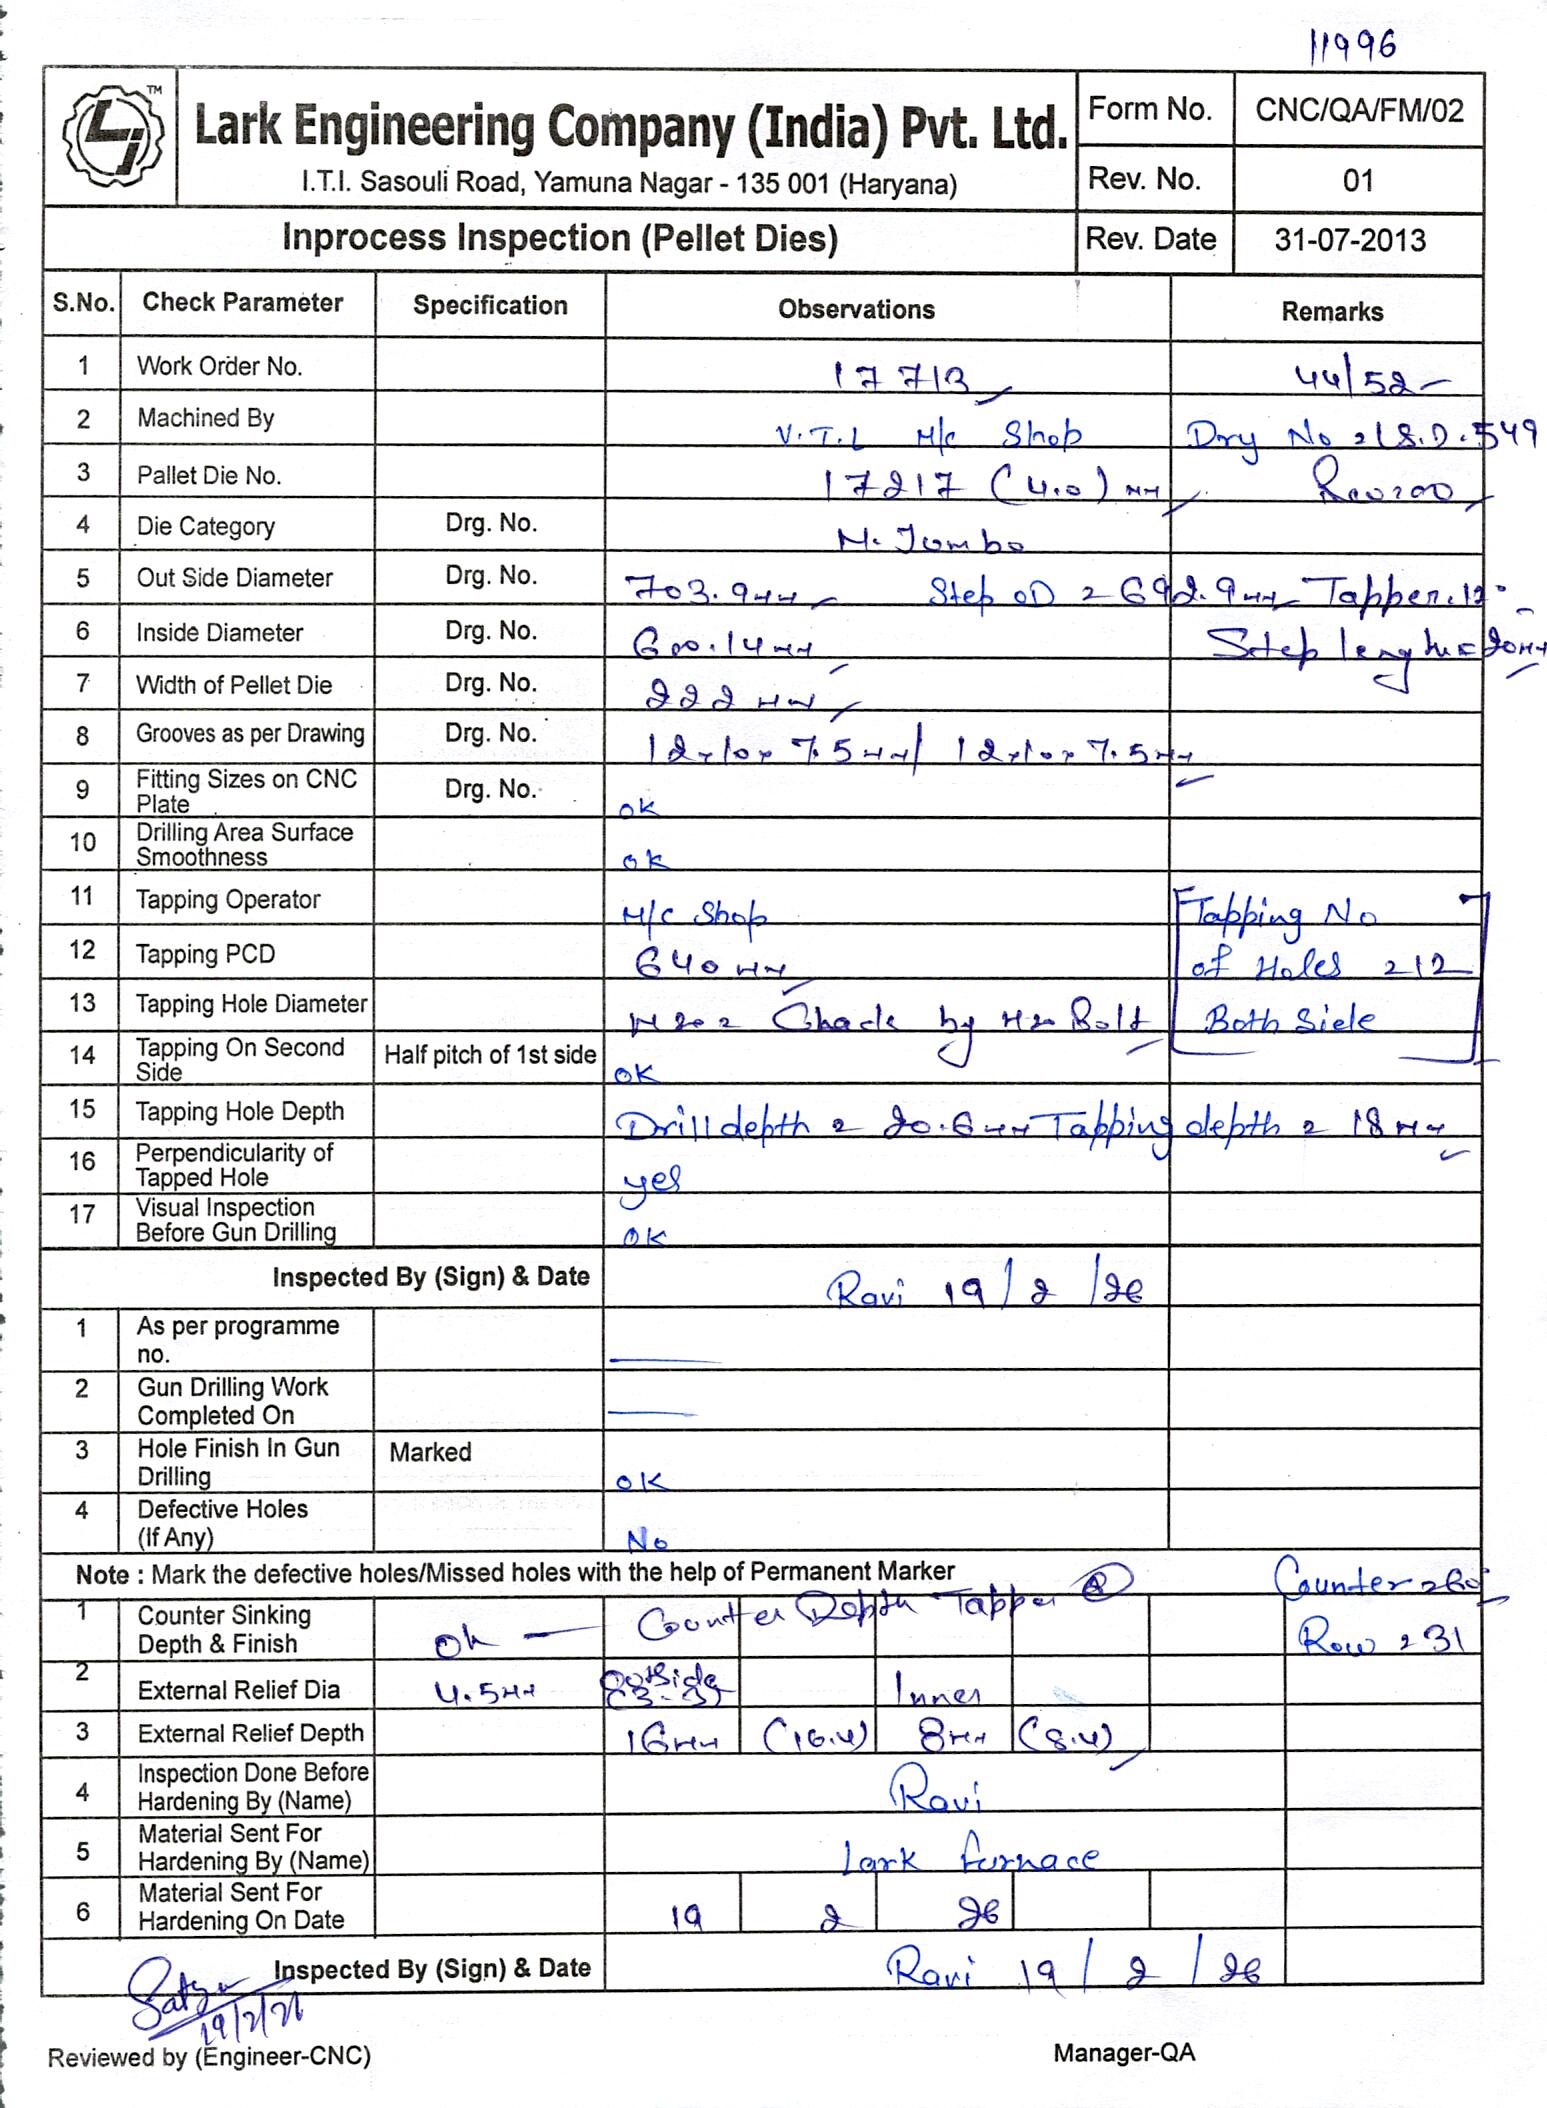 11996
TM
Lark Engineering Company (India) Pvt. Ltd.
I.T.I. Sasouli Road, Yamuna Nagar - 135 001 (Haryana)
Form No. CNC/QA/FM/02
Rev. No. 01
Inprocess Inspection (Pellet Dies) Rev. Date 31-07-2013
S.No. Check Parameter Specification Observations Remarks
1 Work Order No. 17713 44/52
2 Machined By V.T.L M/c Shop Drg No = LS.D.549
3 Pallet Die No. 17217 (4.0) mm Rev=00
4 Die Category Drg. No. M. Jumbo
5 Out Side Diameter Drg. No. 703.9mm Step OD = 692.9mm Tapper.12°
6 Inside Diameter Drg. No. 600.14mm Step length = 20mm
7 Width of Pellet Die Drg. No. 222mm
8 Grooves as per Drawing Drg. No. 12x10x7.5mm/12x10x7.5mm
9 Fitting Sizes on CNC Plate Drg. No. ok
10 Drilling Area Surface Smoothness ok
11 Tapping Operator M/c Shop Tapping No
12 Tapping PCD 640mm of Holes = 12
13 Tapping Hole Diameter M20 = Chack by M20 Bolt Both Side
14 Tapping On Second Side Half pitch of 1st side OK
15 Tapping Hole Depth Drill depth = 20.6mm Tapping depth = 18mm
16 Perpendicularity of Tapped Hole yes
17 Visual Inspection Before Gun Drilling OK
Inspected By (Sign) & Date Ravi 19/2/26
1 As per programme no.
2 Gun Drilling Work Completed On
3 Hole Finish In Gun Drilling Marked OK
4 Defective Holes (If Any) No
Note : Mark the defective holes/Missed holes with the help of Permanent Marker Counter = 60°
1 Counter Sinking Depth & Finish ok — Counter Depth Tapper Row = 31
2 External Relief Dia 4.5mm Outside Inner
3 External Relief Depth 16mm (16.4) 8mm (8.4)
4 Inspection Done Before Hardening By (Name) Ravi
5 Material Sent For Hardening By (Name) Lark furnace
6 Material Sent For Hardening On Date 19 2 26
Inspected By (Sign) & Date Ravi 19/2/26
Satyu
19/2/26
Reviewed by (Engineer-CNC) Manager-QA